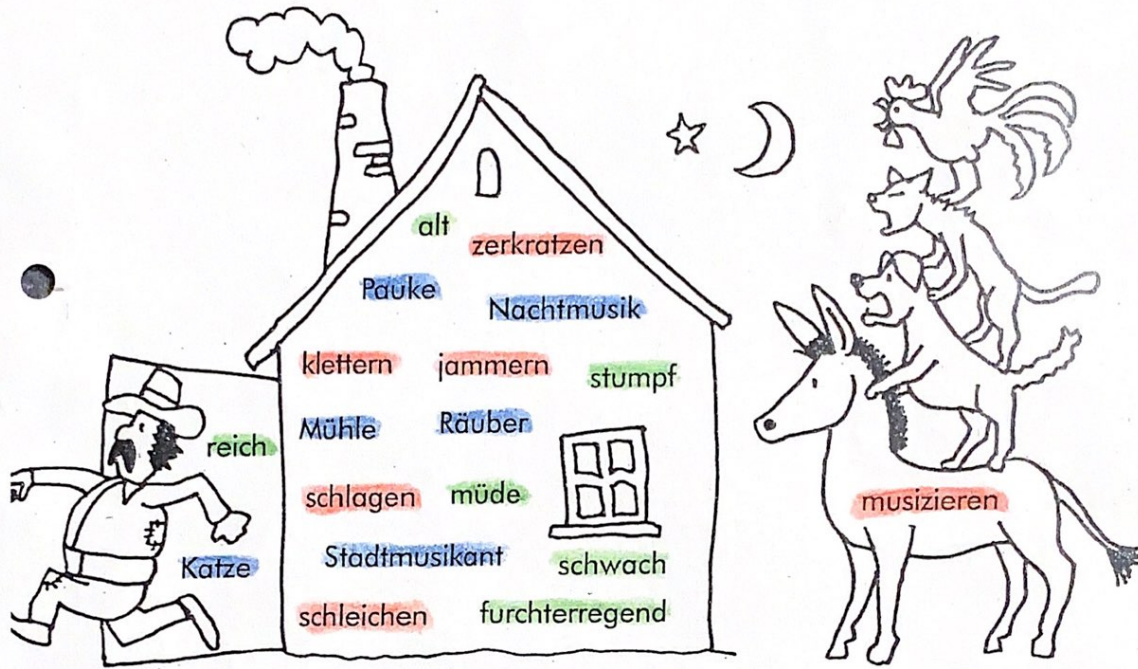 alt
zerkratzen
Pauke
Nachtmusik
klettern
jammern
stumpf
reich
Mühle
Räuber
schlagen
müde
musizieren
Katze
Stadtmusikant
schwach
schleichen
furchterregend